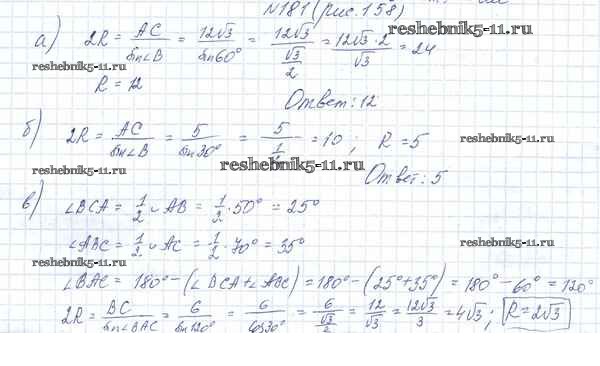 N181 (рис. 158)
reshebnik5-11.ru
а) 2R = AC/sin∠B = 12√3/sin60° = 12√3/(√3/2) = 12√3·2/√3 = 24
reshebnik5-11.ru
R = 12
Ответ: 12
б) 2R = AC/sin∠B = 5/sin30° = 5/(1/2) = 10; R = 5
reshebnik5-11.ru
reshebnik5-11.ru
reshebnik5-11.ru
Ответ: 5
в) ∠BCA = 1/2 ∪ AB = 1/2 · 50° = 25°
∠ABC = 1/2 ∪ AC = 1/2 · 70° = 35°
reshebnik5-11.ru
reshebnik5-11.ru
∠BAC = 180° − (∠BCA + ∠ABC) = 180° − (25° + 35°) = 180° − 60° = 120°
2R = BC/sin∠BAC = 6/sin120° = 6/cos30° = 6/(√3/2) = 12/√3 = 12√3/3 = 4√3; R = 2√3